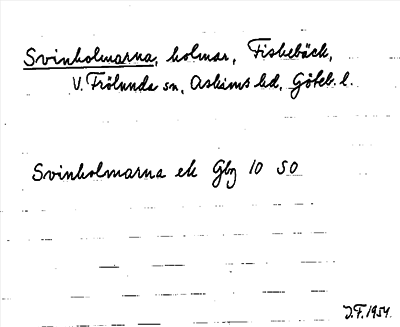 Svinholmarna, holmar, Fiskebäck,
V. Frölunda sn, Askims hd, Göteb. l.
Svinholmarna ek Gbg 10 SO
J.F. 1954